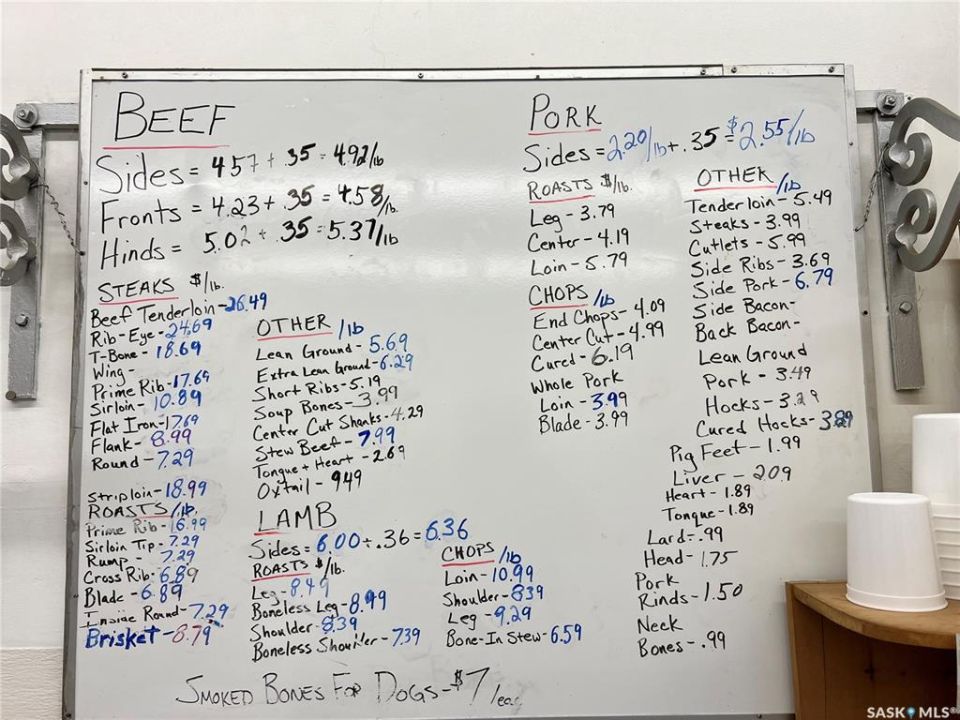 BEEF
Sides = 4.57 + .35 = 4.92/lb
Fronts = 4.23 + .35 = 4.58/lb.
Hinds = 5.02 + .35 = 5.37/lb
STEAKS $/lb.
Beef Tenderloin - 26.49
Rib-Eye - 24.69
T-Bone - 18.69
Wing -
Prime Rib - 17.69
Sirloin - 10.89
Flat Iron - 17.69
Flank - 8.99
Round - 7.29
Striploin - 18.99
ROASTS/lb.
Prime Rib - 16.99
Sirloin Tip - 7.29
Rump - 7.29
Cross Rib - 6.89
Blade - 6.89
Inside Round - 7.29
Brisket - 8.79
OTHER /lb
Lean Ground - 5.69
Extra Lean Ground - 6.29
Short Ribs - 5.19
Soup Bones - 3.99
Center Cut Shanks - 4.29
Stew Beef - 7.99
Tongue + Heart - 2.69
Oxtail - 9.49
LAMB
Sides = 6.00 + .36 = 6.36
ROASTS $/lb.
Leg - 8.49
Boneless Leg - 8.99
Shoulder - 8.39
Boneless Shoulder - 7.39
CHOPS /lb
Loin - 10.99
Shoulder - 8.39
Leg - 9.29
Bone-In Stew - 6.59
PORK
Sides = 2.20/lb + .35 = $2.55/lb
ROASTS $/lb.
Leg - 3.79
Center - 4.19
Loin - 5.79
CHOPS /lb
End Chops - 4.09
Center Cut - 4.99
Cured - 6.19
Whole Pork
Loin - 3.99
Blade - 3.99
OTHER /lb
Tenderloin - 5.49
Steaks - 3.99
Cutlets - 5.99
Side Ribs - 3.69
Side Pork - 6.79
Side Bacon -
Back Bacon -
Lean Ground
Pork - 3.49
Hocks - 3.29
Cured Hocks - 3.89
Pig Feet - 1.99
Liver - 2.09
Heart - 1.89
Tongue - 1.89
Lard - .99
Head - 1.75
Pork
Rinds - 1.50
Neck
Bones - .99
SMOKED BONES FOR DOGS - $7/each
SASK MLS®